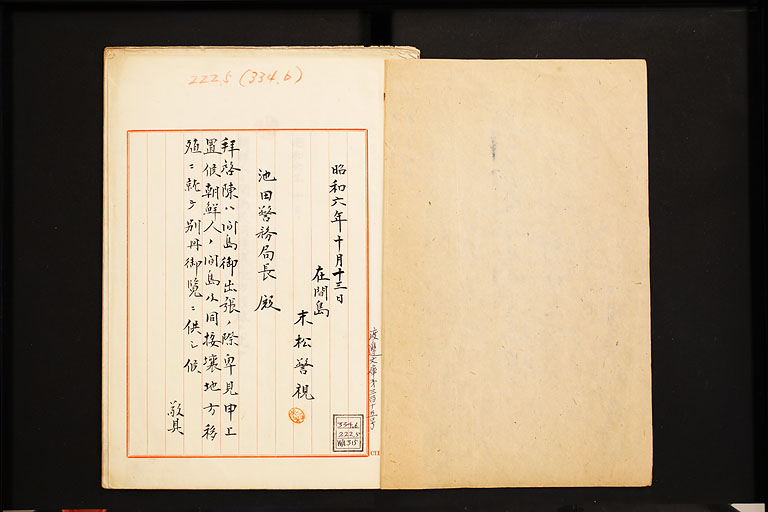 222.5 (334.6)
昭和六年十月十三日
在間島
末松警視
池田警務局長殿
拝啓陳ハ間島御出張ノ際卑見申上
置候朝鮮人ノ間島及同接壤地方移
殖ニ就テ別冊御覧ニ供シ候
敬具
渡邊文庫第三百十五号
334.6
222.5
WA315